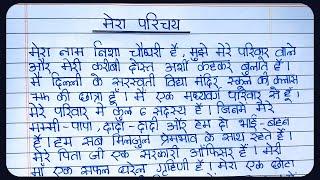 मेरा परिचय
मेरा नाम निशा चौधरी है, मुझे मेरे परिवार वाले
और मेरी करीबी दोस्त अशी कहकर बुलाते हैं।
मैं दिल्ली के सरस्वती विद्या मंदिर स्कूल की क्लास
7th की छात्रा हूँ। मैं एक मध्यवर्ग परिवार से हूँ।
मेरे परिवार में कुल 6 सदस्य हैं। जिनमें मेरे
मम्मी-पापा, दादा-दादी और हम दो भाई-बहन
हैं। हम सब मिलजुल प्रेमभाव के साथ रहते हैं।
मेरे पिता जी एक सरकारी ऑफिसर हैं। मेरी
माँ एक सफल घरेलू गृहिणी हैं। मेरा एक छोटा